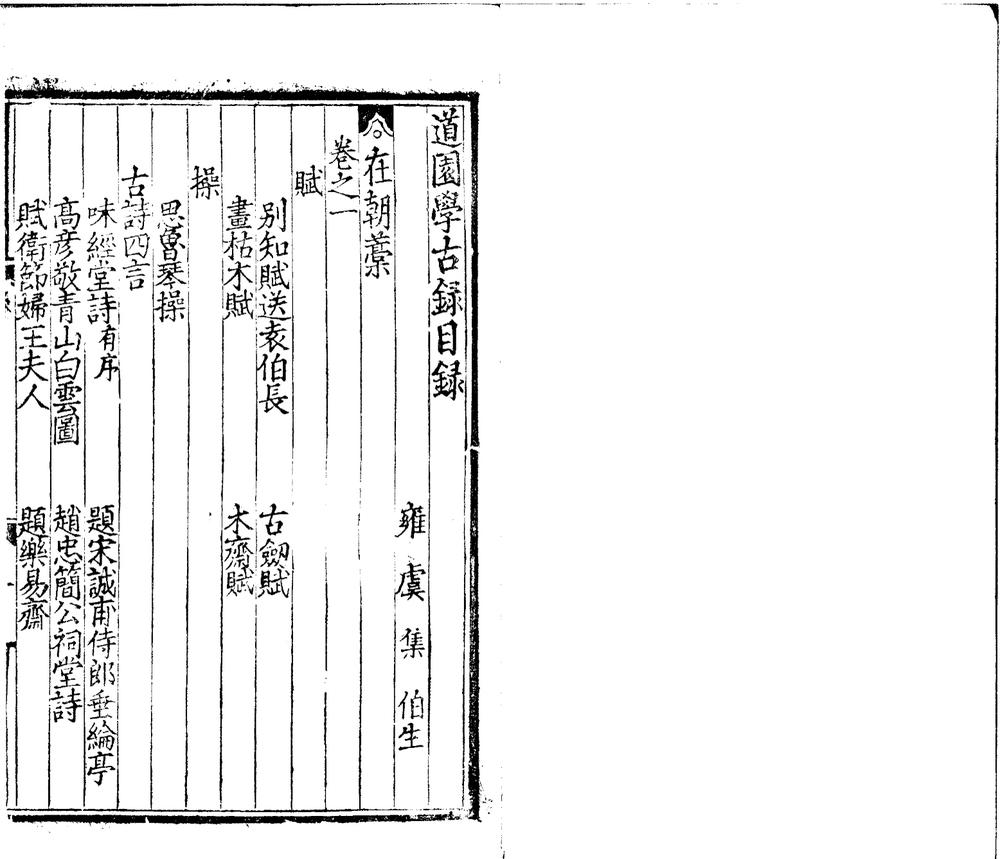 道園學古録目録
雍虞集伯生
在朝藁
卷之一
賦
别知賦送袁伯長　古劒賦
畫枯木賦　木齋賦
操
思魯琴操
古詩四言
味經堂詩有序　題宋誠甫侍郎垂綸亭
髙彦敬青山白雲圖　趙忠簡公祠堂詩
賦衛節婦王夫人　題樂易齋